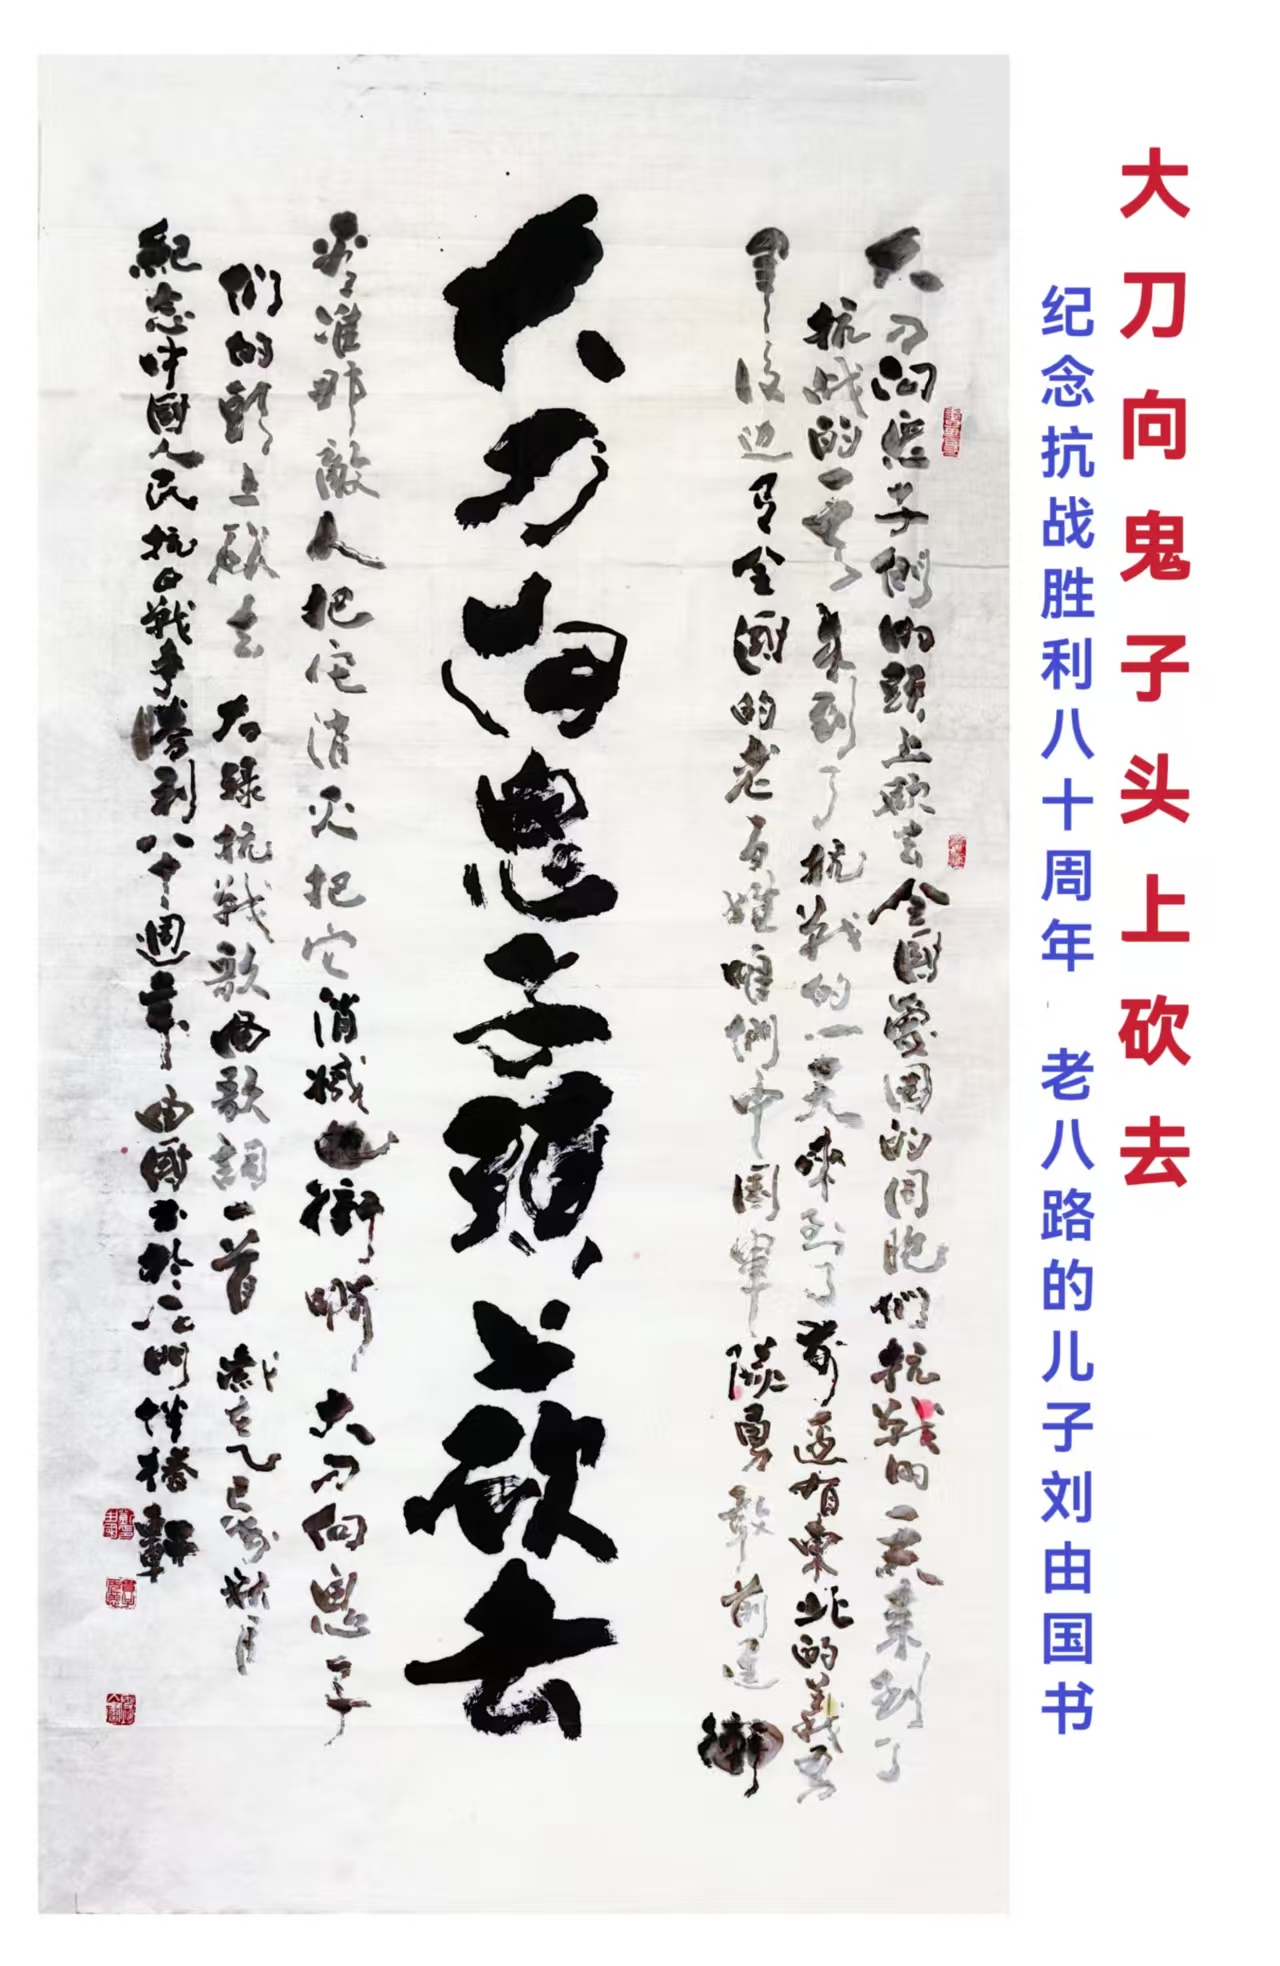 大刀向鬼子头上砍去
纪念抗战胜利八十周年 老八路的儿子刘由国书
大刀向鬼子们的頭上砍去全國愛国的同胞们抗戰的一天来到了
抗战的一天来到了抗戰的一天来到了前边有東北的義勇
軍後边有全國的老百姓咱們中国軍隊勇敢前进
看准那敵人把它消灭把它消滅衝啊大刀向鬼子
们的頭上砍去 右録抗戰歌曲歌詞一首 歲在乙巳
大刀向鬼子頭上砍去
紀念中國人民抗日戰争勝利八十週年 由國書於